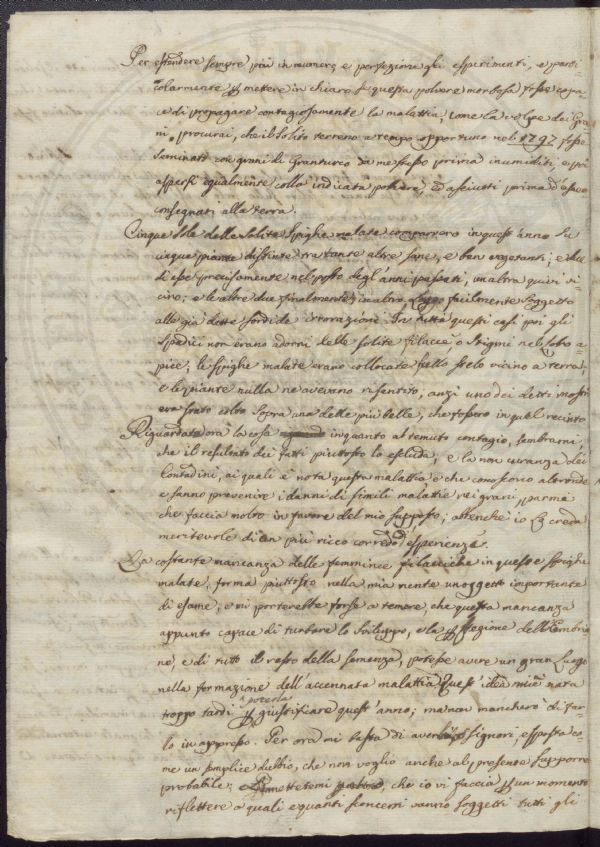 Per estendere sempre più in numero, e perfezione gli esperimenti, e parti-
colarmente p mettere in chiaro se questa polvere morbosa fosse capa-
ce di propagare contagiosamente la malattia, come la volpe dei Gra-
ni, procurai, che il solito terreno a tempo opportuno nel 1797 fosse
seminato con grani di Granturco da me stesso prima inumiditi, e poi
aspersi egualmente colla indicata polvere, ed asciutti prima d'esser
consegnati alla terra.
Cinque sole delle solite spighe malate comparvero in quest'anno su
cinque piante distinte tra tante altre sane, e ben vegetanti; e due
di esse precisamente nel posto degl'anni passati, un altra quivi vi-
cino; e le altre due finalmente in altro luogo facilmente soggetto
alle già dette sordide irrorazioni. In tutti questi casi poi gli
spadici non erano adorni delle solite filacce, o stigmi nel loro a-
pice; le spighe malate erano collocate sullo stelo vicino a terra;
e le piante nulla ne avevano risentito, anzi uno dei detti mostri
era stato colto sopra una delle più belle, che fossero in quel recinto
Riguardata ora la cosa inquanto al temuto contagio, sembrami,
che il resultato dei fatti piuttosto lo escluda; e la non curanza dei
Contadini, ai quali è nota questa malattia, e che conoscono altronde
e sanno prevenire i danni di simili malattie nei grani, parmi
che faccia molto in favore del mio supposto; altenchè io la creda
meritevole di un più ricco corredo d'esperienze.
La costante mancanza delle femminee filacciche in queste spighe
malate, forma piuttosto nella mia mente un oggetto importante
di esame; e mi porterebbe forse a temere, che questa mancanza
appunto capace di turbare lo sviluppo, e la pffezione dell'Embrio-
ne, e di tutto il resto della semenza, potesse avere un gran luogo
nella formazione dell'accennata malattia. Quest'idea mi è nata
troppo tardi p poterla giustificare quest'anno; ma non mancherò di far-
lo in appresso. Per ora mi basta di averla, o signori, esposta co-
me un semplice dubbio, che non voglio anche al presente supporre
probabile; Permettetemi, che io vi faccia p un momento
riflettere a quali e quanti sconcerti vanno soggetti tutti gli